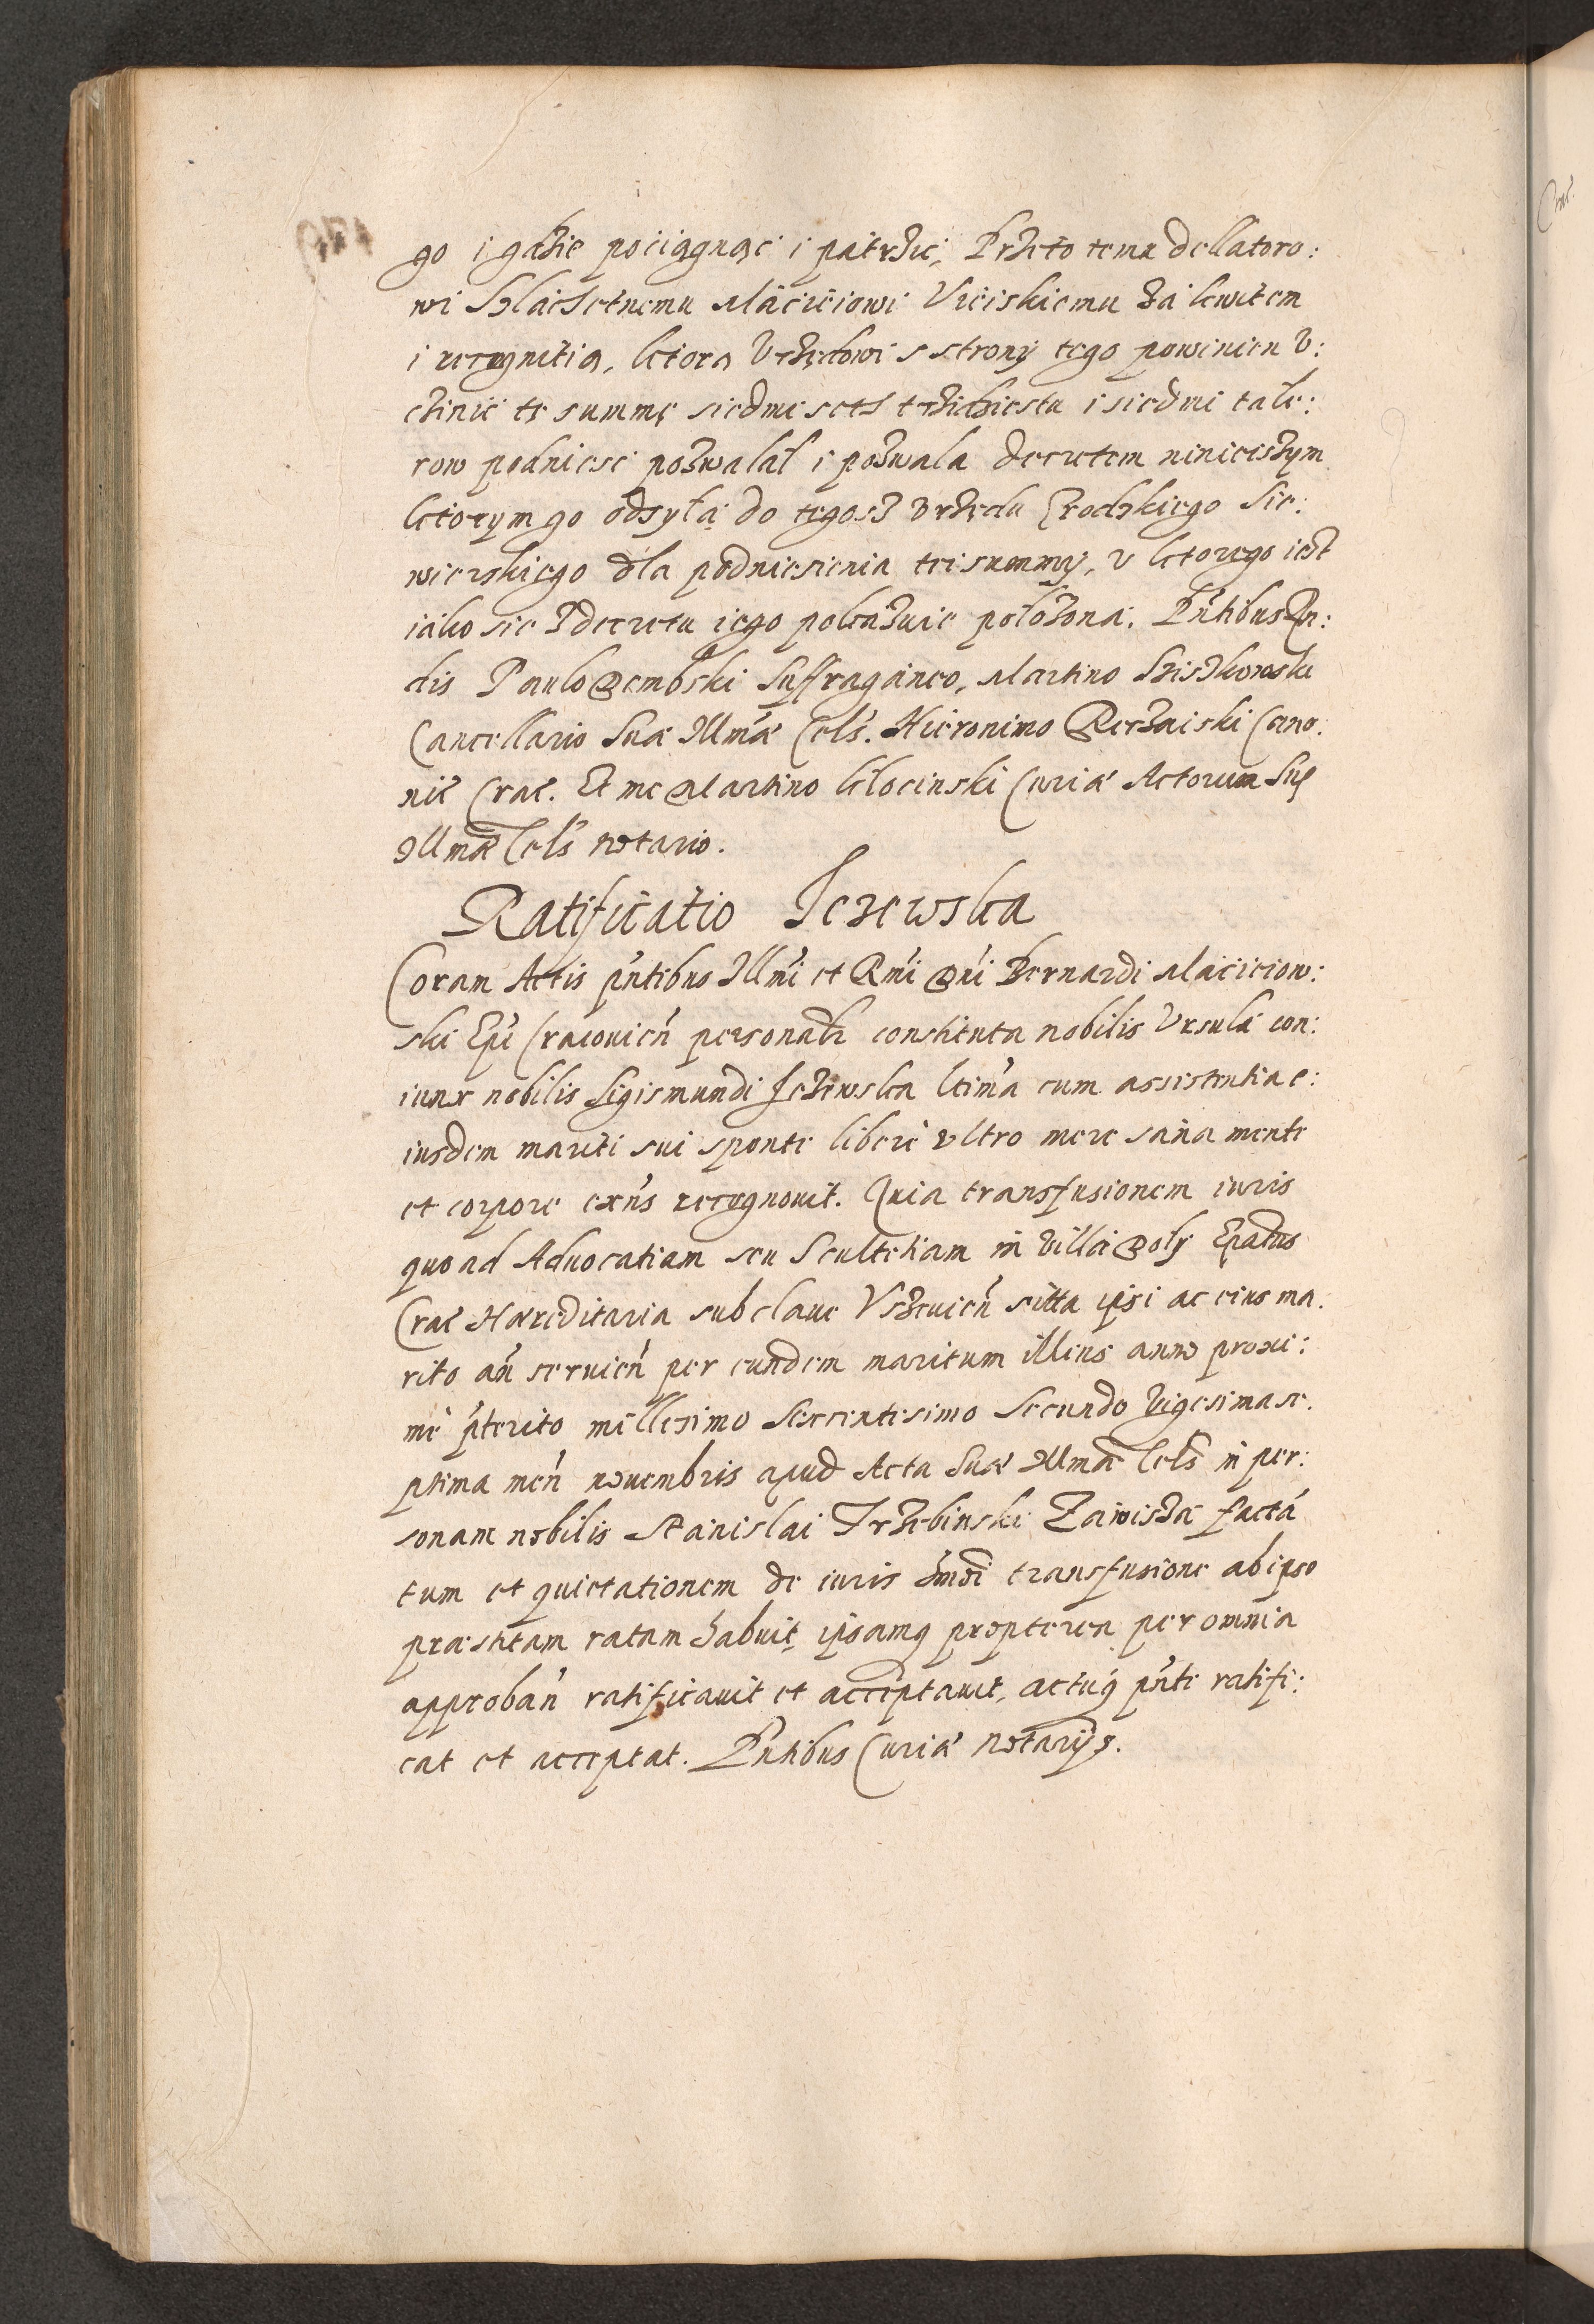 go i gdzie pociągnąc i patrzic, Przeto temu dellatoro:
wi Szlachetnemu Macieiowi Uieiskiemu za kwitem
i recognitią, ktorą Vrzędowi s strony tego powinien v:
czinić te summę siedmiset trzidziestu i siedmi tale:
row podniesc pozwalał i pozwala decretem ninieiszym
ktorym go odsyła do tegosz vrzędu Grodzkiego Sie:
wierskiego dla podniesienia tei summy, v ktorego iest
iako sie z decretu iego pokazuie położona. Pntibus Rn:
dis Paulo Dembski Suffraganeo, Martino Sziszkowski
Cancellario Suæ Illmæ Cels. Hieronimo Rerzaiski Cano:
nic Crac. Et me Martino Klocinski Curiæ Actorum Suę
Illmæ Cels notario.
Ratificatio Jezewska
Coram Actis pntibus Illmi et Rmi Dni Bernardi Macieiow:
ski Epi Cracouien personalr constituta nobilis Vrsula con:
iunx nobilis Sigismundi Jezewska ltima cum assistentia e:
iusdem mariti sui sponte libere vltro mere sana mente
et corpore exns recognouit. Quia transfusionem iuris
quoad Aduocatiam seu Scultetiam in villa Doly Epatus
Crac Hæreditaria sub claue Vszeuien sitta ipsi ac eius ma:
rito an seruien per eundem maritum illius anno proxi:
me pterito millesimo Sexcentesimo Secundo vigesima se:
ptima men nouembris apud Acta Suæ Illmæ Cels in per:
sonam nobilis Stanislai Trzebinski Zawisza facta
tum et quietationem de iuris hmoi transfusione ab ipso
præstitam ratam habuit, ipsamq propterea per omnia
approban ratificauit et acceptauit, actuq pnte ratifi:
cat et acceptat. Pntibus Curiæ notarijs.